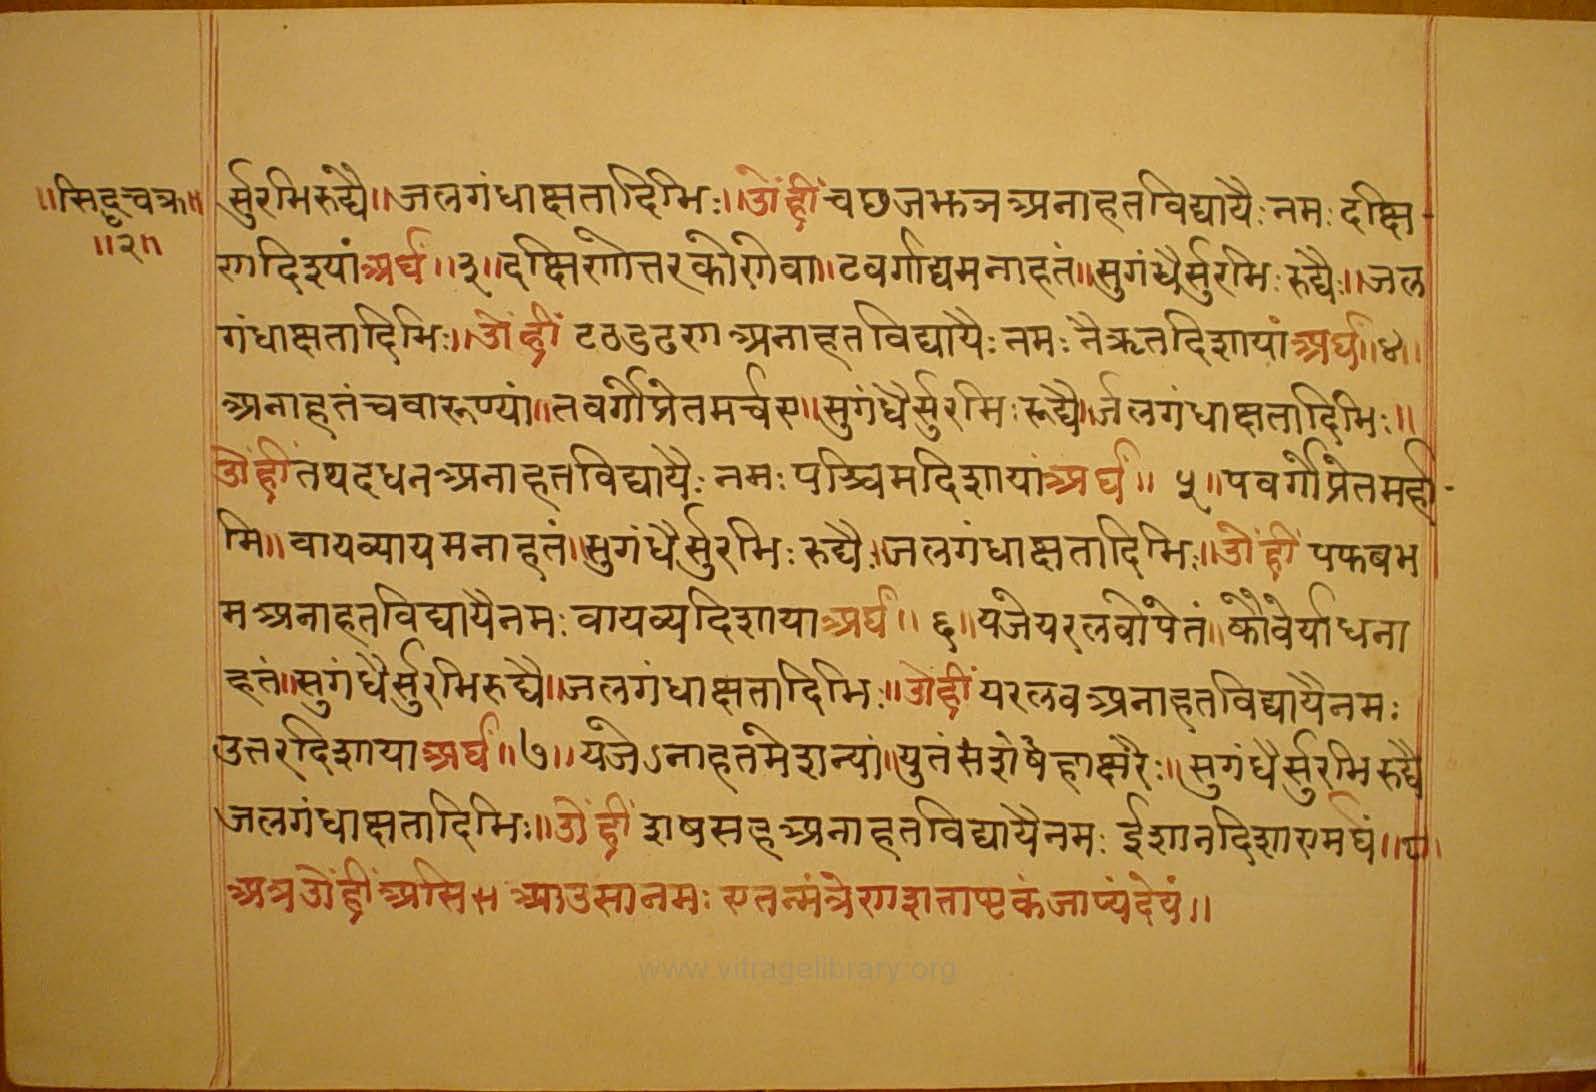 ॥सिद्धचक्र॥
॥२॥
र्सुरभिरुद्यै॥जलगंधाक्षतादिभिः॥ओंह्रीं चछजझञअनाहतविद्यायैः नमः दक्षि-
णदिश्यां अर्घं ॥३॥ दक्षिणोत्तरकोणेवा॥टवर्गाद्यमनाहतं॥सुगंधैर्सुरभिः रुद्यैः॥जल
गंधाक्षतादिभिः॥ओंह्रीं टठडढण अनाहतविद्यायैः नमः नैऋतदिशायां अर्घं॥४॥
अनाहतंचवारूण्यां॥तवर्गोप्रेतमर्चए॥सुगंधैर्सुरभिः रूद्यै॥र्जलगंधाक्षतादिभिः॥
ओंह्रीं तथदधनअनाहतविद्यायैः नमः पश्चिमदिशायां अर्घं॥ ५॥पवर्गोप्रेतमर्हा-
मि॥वायव्यायमनाहतं॥सुगंधैर्सुरभिः रुद्यैः॥जलगंधाक्षतादिभिः॥ओंह्रीं पफबभ
मअनाहतविद्यायैनमः वायव्यदिशाया अर्घं॥ ६॥यजेयरलवोपेतं॥कौवेर्याधना
हतं॥सुगंधैर्सुरभिरुद्यै॥जलगंधाक्षतादिभिः॥ओंह्रीं यरलवअनाहतविद्यायैनमः
उत्तरदिशाया अर्घं॥७॥यजेऽनाहतमेशान्यां॥युतंसंशेषहाक्षरैः॥सुगंधैर्सुरभिरुद्यै
जलगंधाक्षतादिभिः॥ओंह्रीं शषसहअनाहतविद्यायैनमः ईशानदिशाएमर्घं॥८॥
अत्रओंह्रींअसि आउसानमः एतन्मंत्रेणशताष्टकंजाप्यंदेयं॥
www.vitragelibrary.org